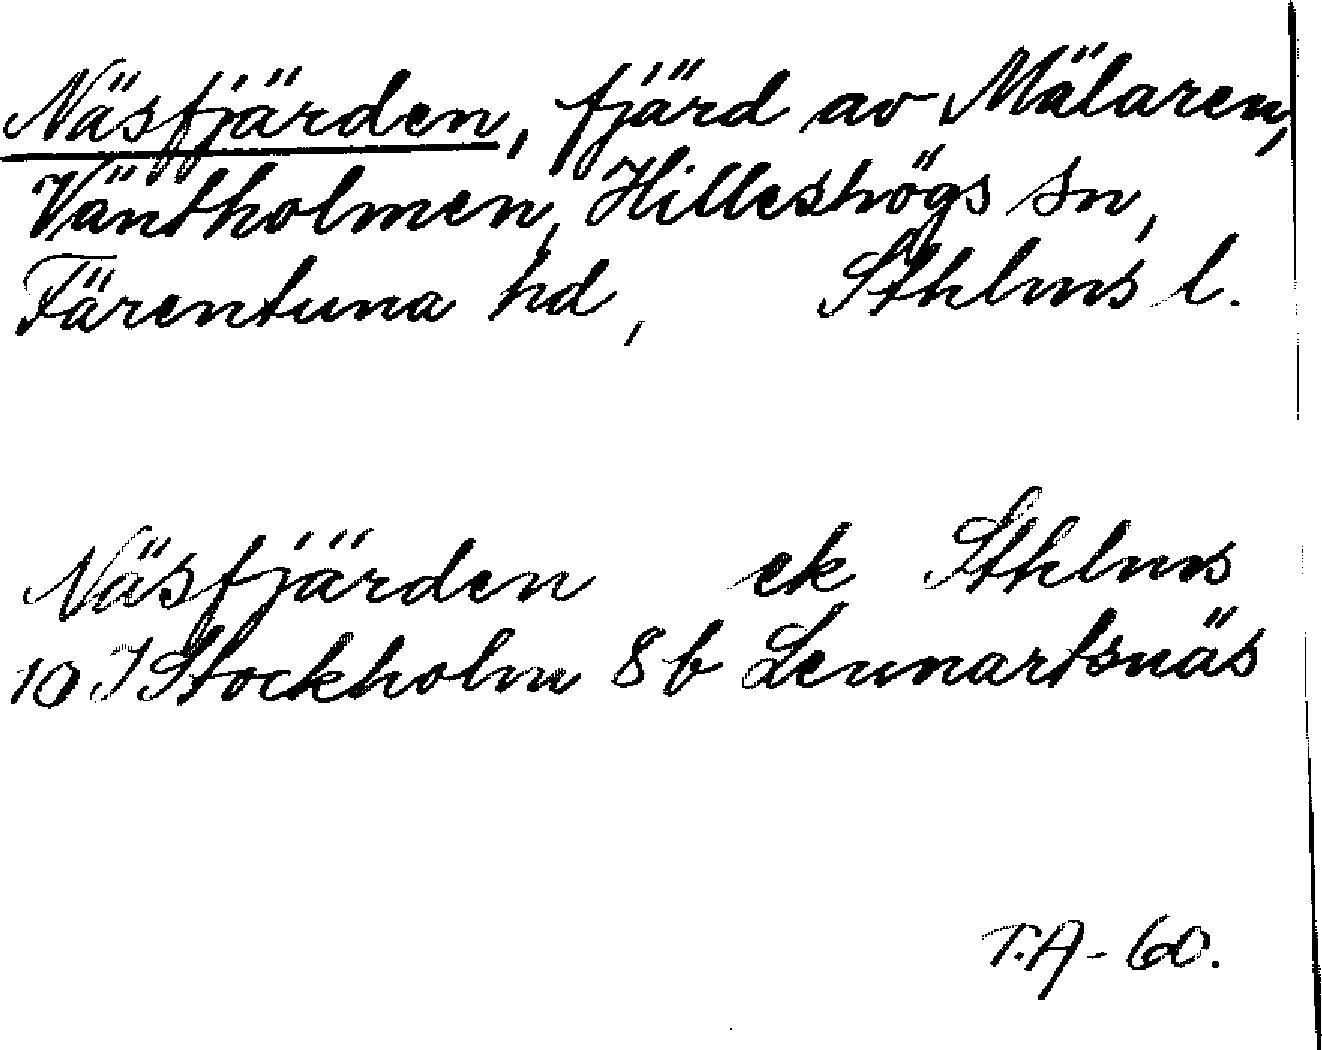 Näsfjärden, fjärd av Mälaren,
Väntholmen, Hilleshögs sn,
Färentuna hd, Sthlms l.
Näsfjärden ek Sthlms
10 I Stockholm 8 b Lennartsnäs
T.A-60.